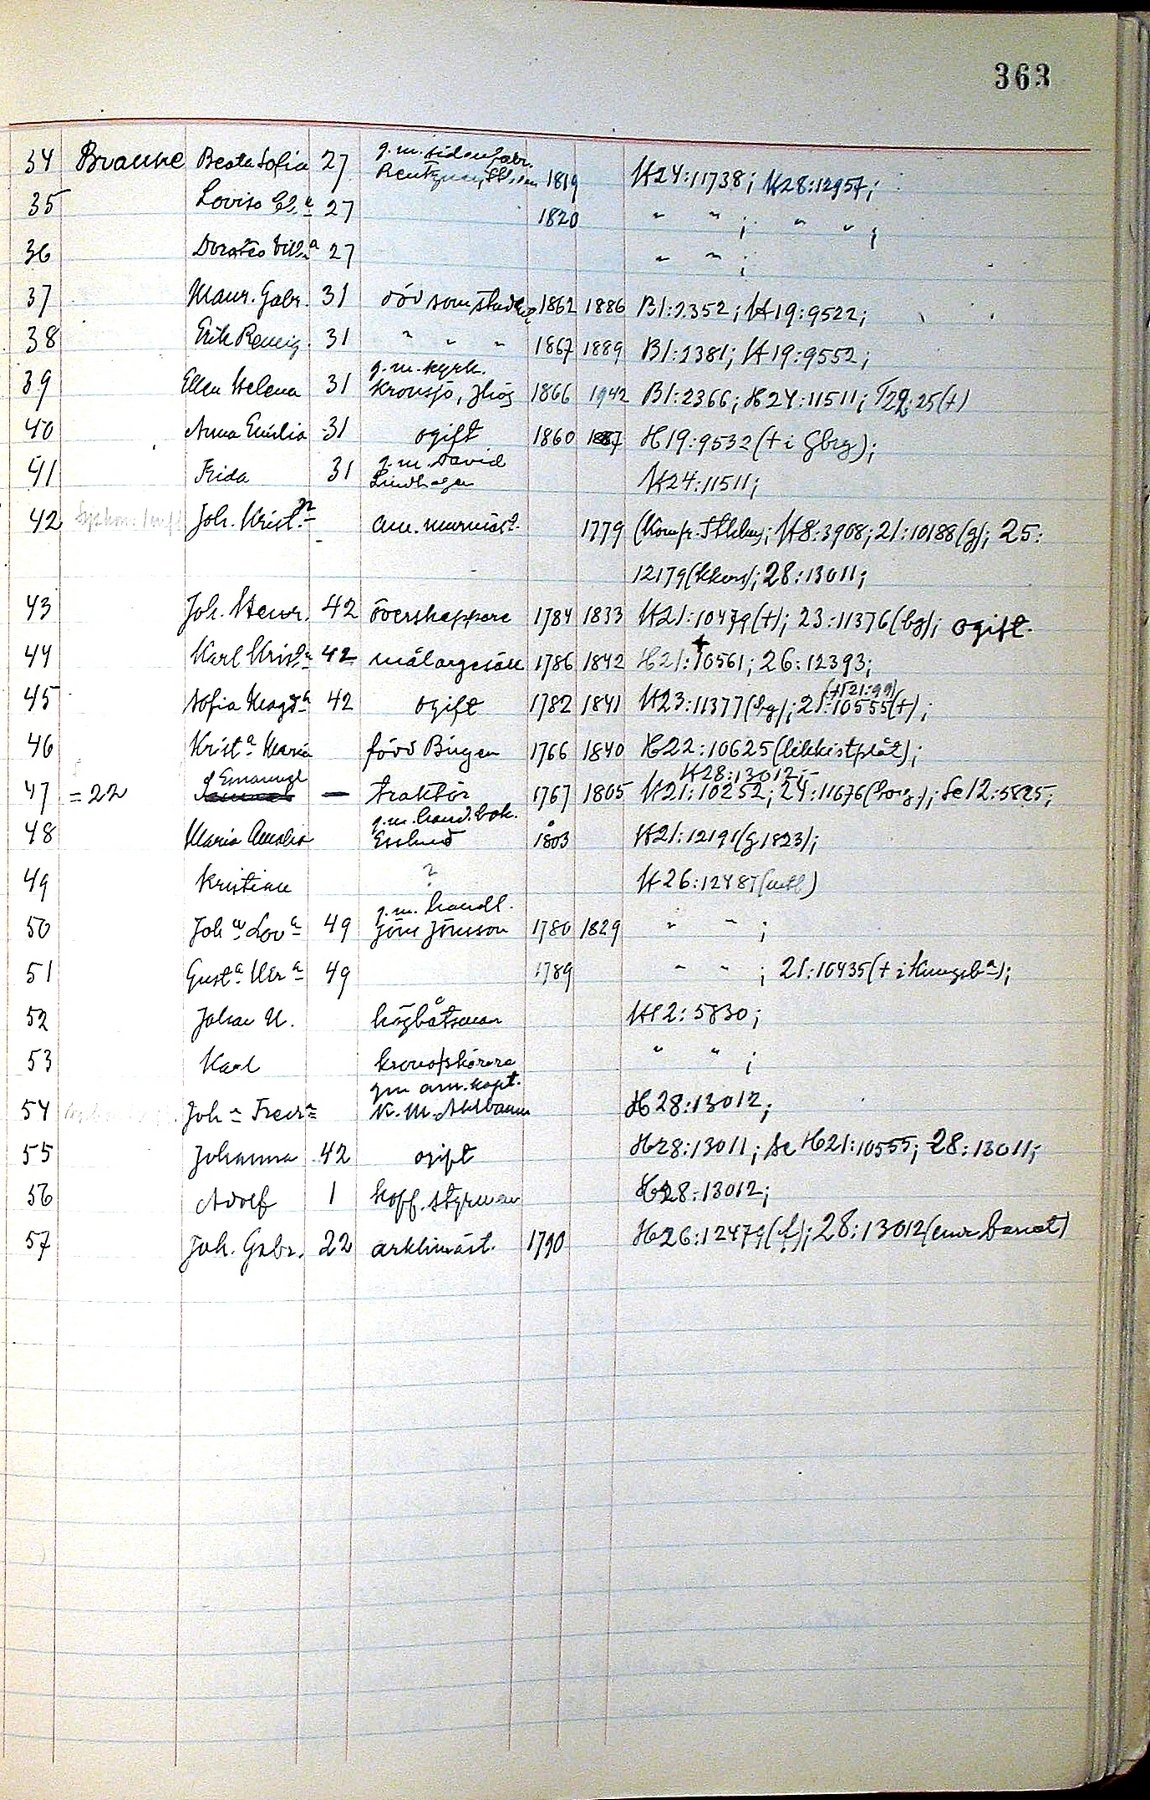 363
34 Braune Beata Sofia 27 g.m. sidenfabr. 1819 H24:11738; H28:12957;
35 Lovisa El.a 27 1820 " " ; " " ;
36 Dorotea Vill.a 27 " " ;
37 Maur. Gabr. 31 död som stud. 1862 1886 B1:2352; H19:9522;
38 Erik Remig. 31 " " " 1867 1889 B1:2381; H19:9552;
39 Ellen Helena 31 g.m. kyrk. Kronsjö, 1866 1942 B1:2366; H24:11511; T29:25(+)
40 Anna Emilia 31 ogift 1860 1887 H19:9532 (+ i Gbrg);
41 Frida 31 g.m. David Lindhagen H24:11511;
42 Joh. Krist.n am. murmäst. 1779 (Komp. Sthlm); H8:3908; 21:10188(g); 25:
12179 28:13011;
43 Joh. Henr. 42 överskeppare 1784 1833 H21:10479(+); 23:11376(bg); ogift.
44 Karl Krist.n 42 målargesäll 1786 1842 H21:10561; 26:12393;
45 Sofia Magd.a 42 ogift 1782 1841 H23:11377 21:10555(+);
46 Krist.a Maria född Birgen 1766 1840 H22:10625 (likkistplåt);
H28:13012;
47 =22 Emanuel — traktör 1767 1805 H21:10252; 24:11676 Se 12:5825;
48 Maria Amalia g.m. hand. bok. 1803 H21:12191(g 1823);
49 Kristian ? H26:12487
50 Joh.a Lov.a 49 g.m. handl. Jöns Jönsson 1780 1829 " " ;
51 Gust.a Ulr.a 49 1789 " " ; 21:10435 (+ i Kungsb.a);
52 Johan U. högbåtsman H12:5830;
53 Karl " " ;
54 Joh.a Fredr.a gm am. kapt. K. M. H28:13012;
55 Johanna 42 ogift H28:13011; Se H21:10555; 28:13011;
56 Adolf 1 koff. styrman H28:13012;
57 Joh. Gabr. 22 arklimäst. 1790 H26:12479(f); 28:13012